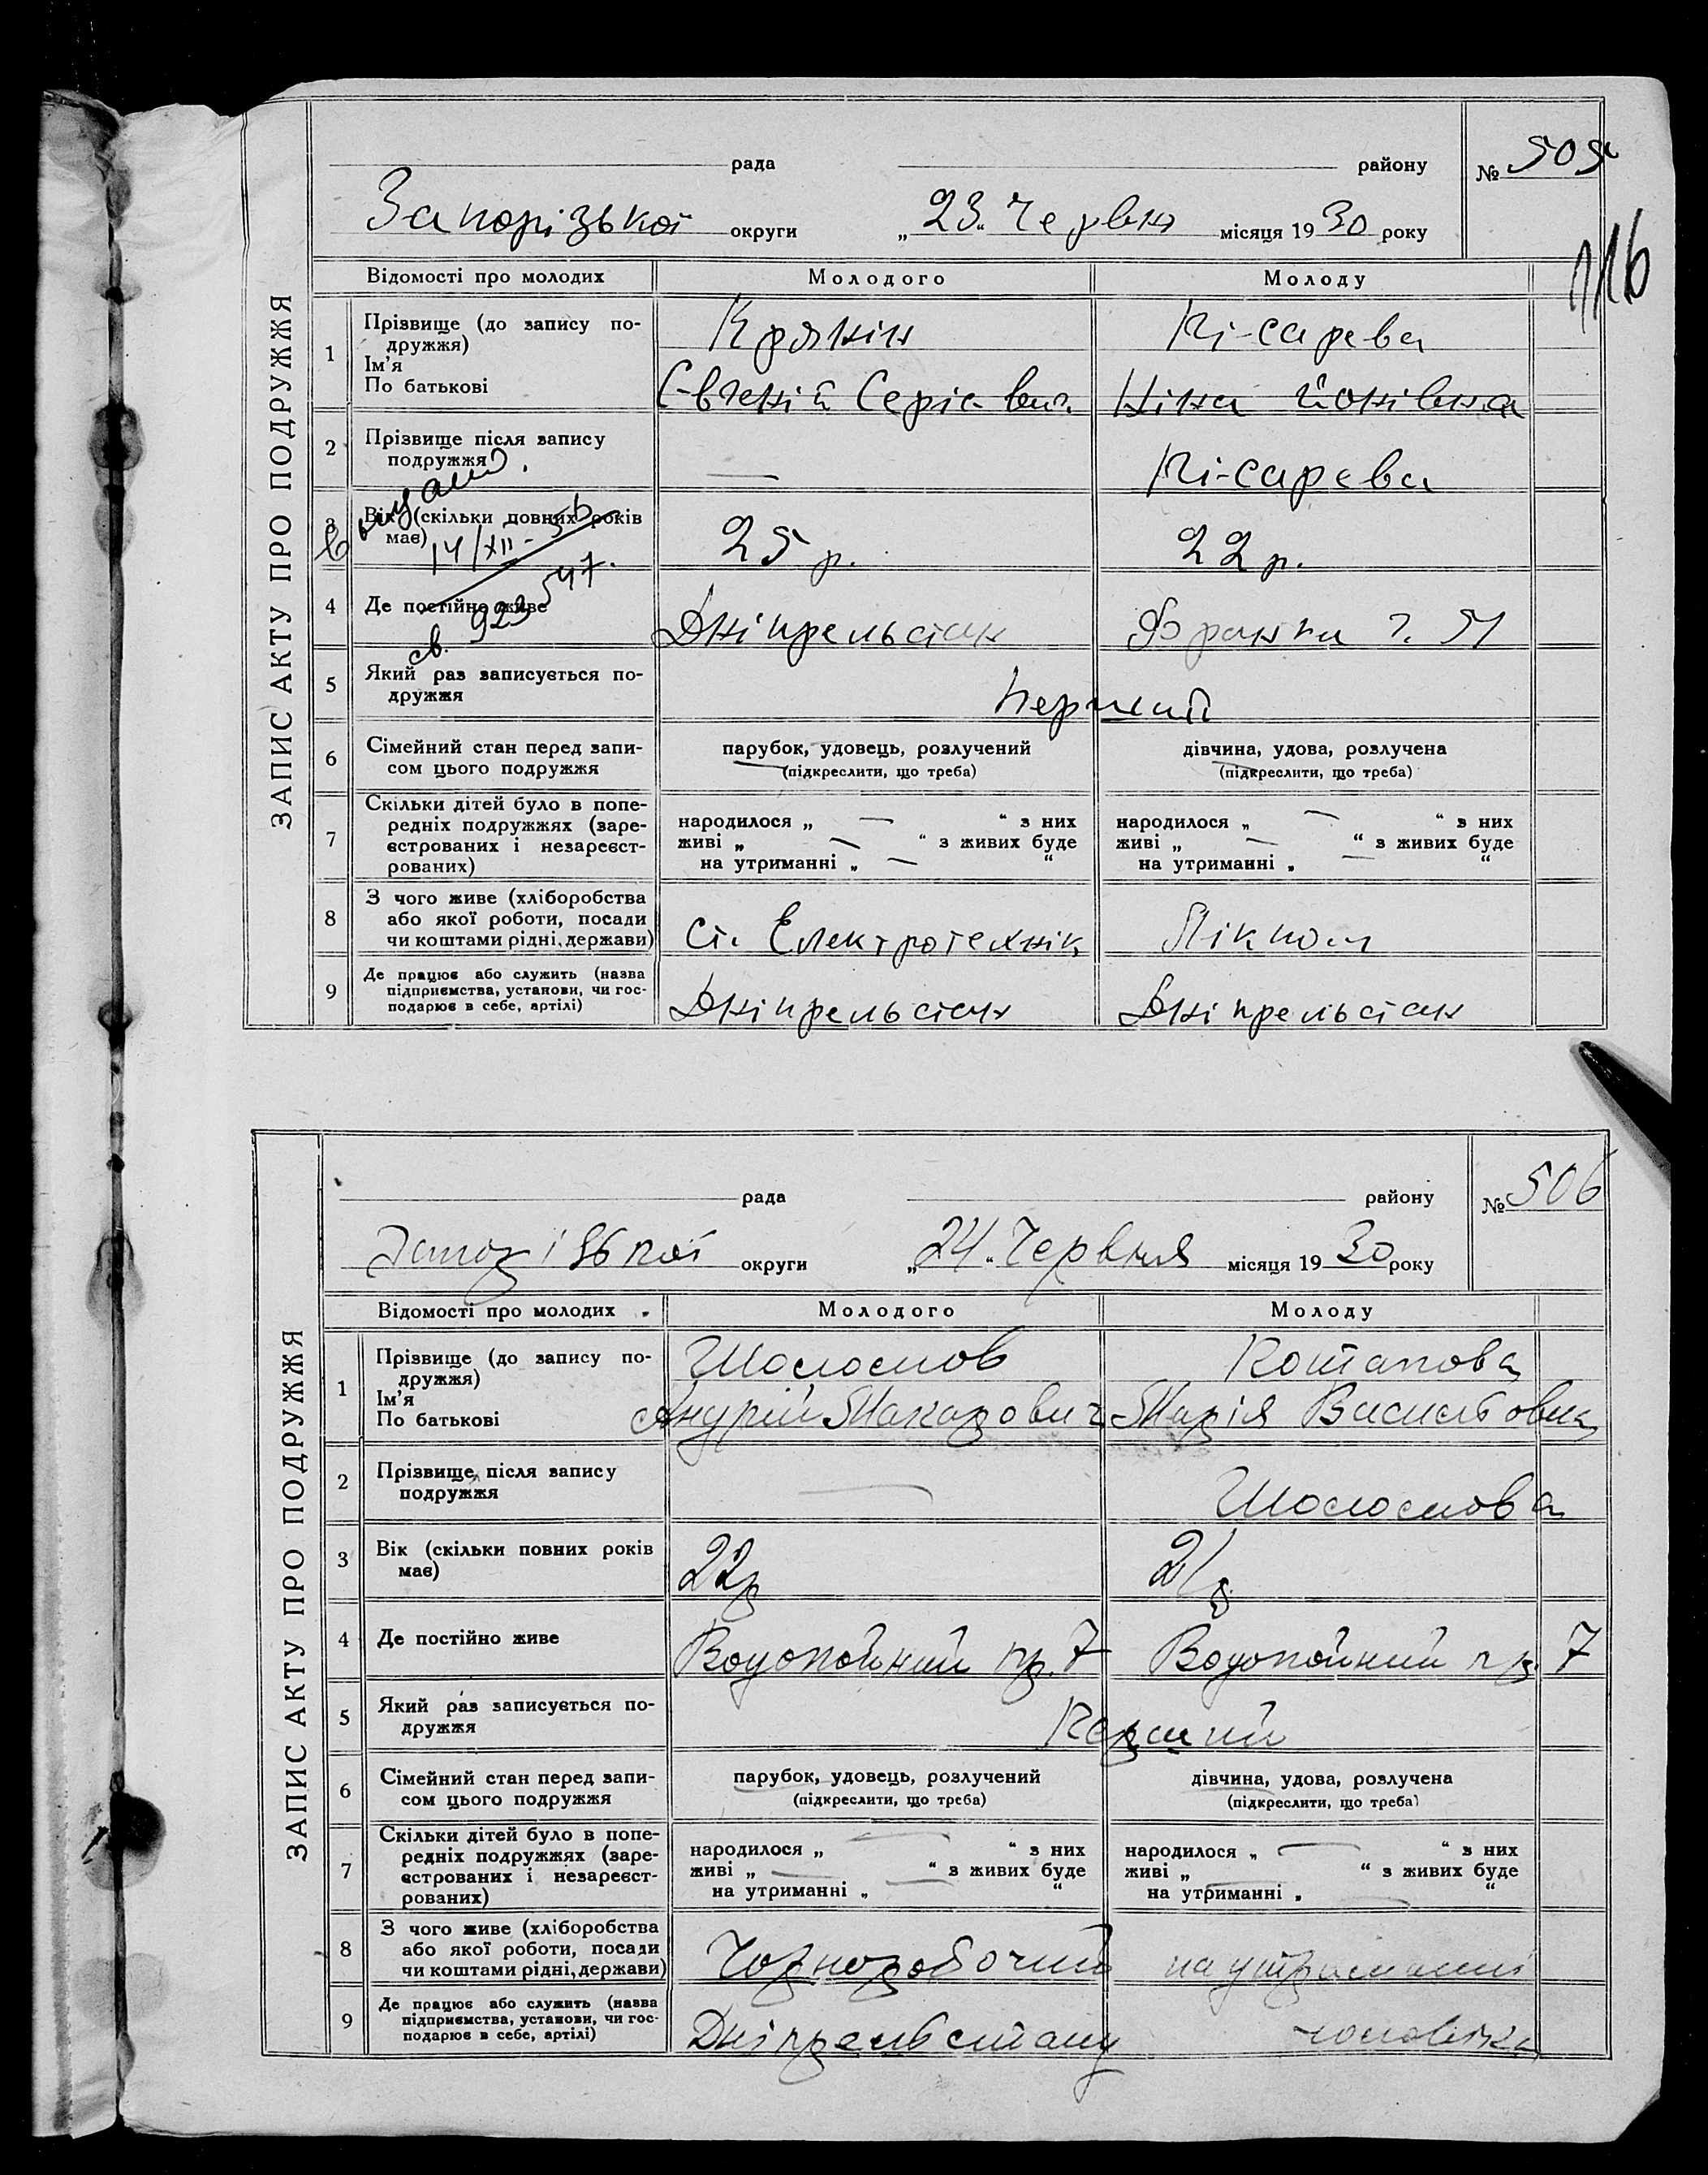 ЗАПИС АКТУ ПРО ПОДРУЖЖЯ
рада району № 505
Запорізької округи „23“ Червня місяця 1930 року
116
Відомості про молодих Молодого Молоду
1 Прізвище (до запису подружжя)
Ім'я
По батькові
Євгеній Ніна
2 Прізвище після запису
подружжя —
3 Вік (скільки повних років
має) 25 р. 22 р.
14/XII-56
св. 923547.
4 Де постійно живе Дніпрельстан
5 Який раз записується по-
дружжя Перший
6 Сімейний стан перед запи-
сом цього подружжя
парубок, удовець, розлучений
(підкреслити, що треба)
дівчина, удова, розлучена
(підкреслити, що треба)
7 Скільки дітей було в попе-
редніх подружжях (заре-
єстрованих і незареєст-
рованих)
народилося „ — “ з них
живі „ — “ з живих буде
на утриманні „ — “
народилося „ — “ з них
живі „ — “ з живих буде
на утриманні „ — “
8 З чого живе (хліборобства
або якої роботи, посади
чи коштами рідні, держави)
Ст. Електротехнік Лікпом
9 Де працює або служить (назва
підприємства, установи, чи гос-
подарює в себе, артілі)
Дніпрельстан Дніпрельстан
ЗАПИС АКТУ ПРО ПОДРУЖЖЯ
рада району № 506
Запорізької округи „24“ Червня місяця 1930 року
Відомості про молодих Молодого Молоду
1 Прізвище (до запису по-
дружжя)
Ім'я
По батькові
Андрій Макарович Марія
2 Прізвище після запису
подружжя —
3 Вік (скільки повних років
має) 22 р 21 р.
4 Де постійно живе Водопойний пр. 7 Водопойний пр. 7
5 Який раз записується по-
дружжя Перший
6 Сімейний стан перед запи-
сом цього подружжя
парубок, удовець, розлучений
(підкреслити, що треба)
дівчина, удова, розлучена
(підкреслити, що треба)
7 Скільки дітей було в попе-
редніх подружжях (заре-
єстрованих і незареєст-
рованих)
народилося „ — “ з них
живі „ — “ з живих буде
на утриманні „ — “
народилося „ — “ з них
живі „ — “ з живих буде
на утриманні „ — “
8 З чого живе (хліборобства
або якої роботи, посади
чи коштами рідні, держави)
Чорноробочий на утриманні
9 Де працює або служить (назва
підприємства, установи, чи гос-
подарює в себе, артілі)
Дніпрельстану чоловіка